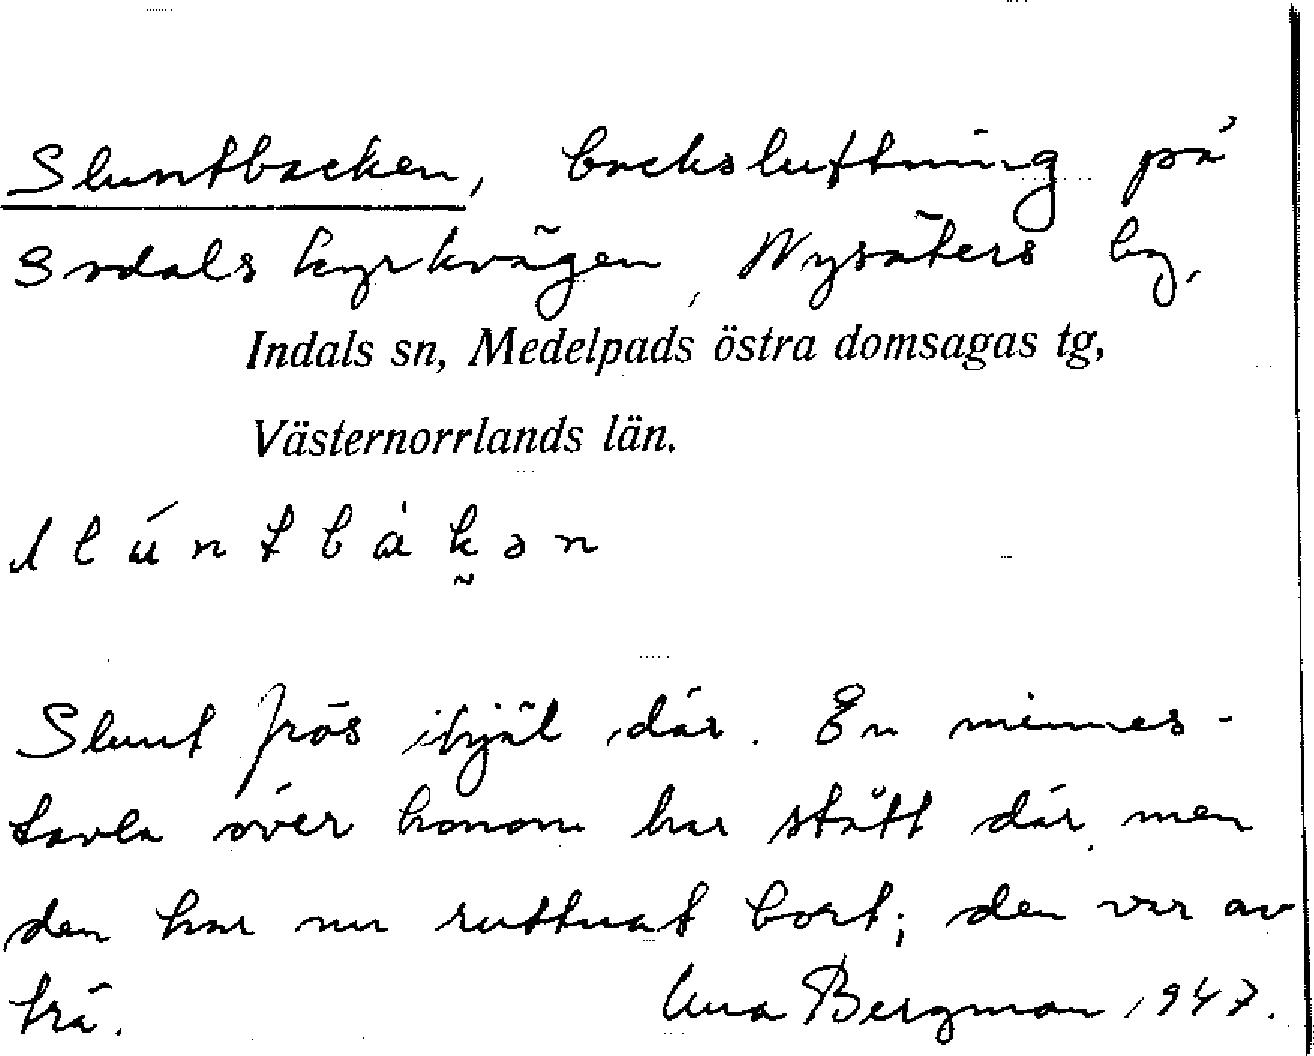 Sluntbacken, backsluttning på
Indals kyrkvägen, Nysäters by,
Indals sn, Medelpads östra domsagas tg,
Västernorrlands län.
slúntbàkən
Slunt frös ihjäl där. En minnes-
tavla över honom har stått där, men
den har nu ruttnat bort; den var av
trä. Anna Bergman 1947.